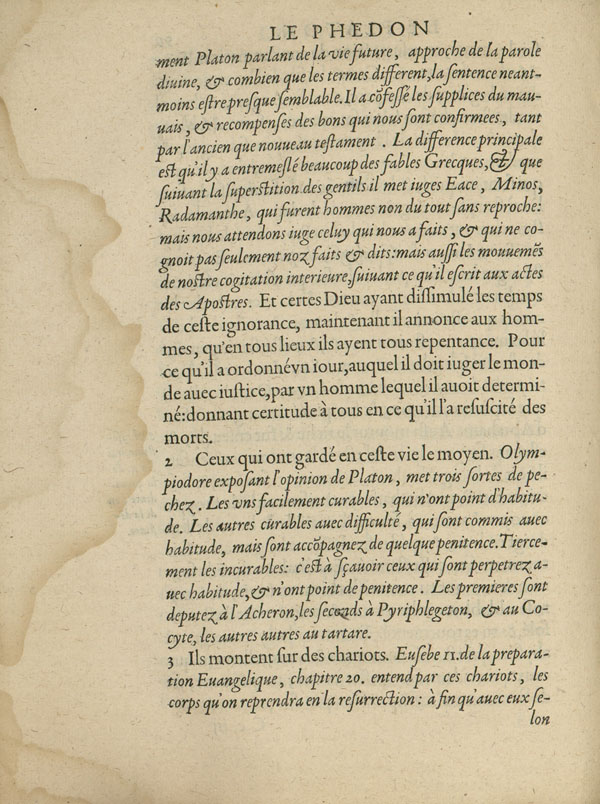 LE PHEDON
ment Platon parlant de la vie future, approche de la parole
diuine, & combien que les termes different, la sentence neant-
moins estre presque semblable. Il a cõfessé les supplices du mau-
uais, & recompenses des bons qui nous sont confirmees, tant
par l'ancien que nouueau testament. La difference principale
est qu'il y a entremeslé beaucoup des fables Grecques, & que
suiuant la superstition des gentils il met iuges Eace, Minos,
Radamanthe, qui furent hommes non du tout sans reproche:
mais nous attendons iuge celuy qui nous a faits, & qui ne co-
gnoit pas seulement noz faits & dits: mais aussi les mouuemẽs
de nostre cogitation interieure, suiuant ce qu'il escrit aux actes
des Apostres. Et certes Dieu ayant dissimulé les temps
de ceste ignorance, maintenant il annonce aux hom-
mes, qu'en tous lieux ils ayent tous repentance. Pour
ce qu'il a ordonné vn iour, auquel il doit iuger le mon-
de auec iustice, par vn homme lequel il auoit determi-
né: donnant certitude à tous en ce qu'il l'a resuscité des
morts.
2 Ceux qui ont gardé en ceste vie le moyen. Olym-
piodore exposant l'opinion de Platon, met trois sortes de pe-
chez. Les vns facilement curables, qui n'ont point d'habitu-
de. Les autres curables auec difficulté, qui sont commis auec
habitude, mais sont accõpagnez de quelque penitence. Tierce-
ment les incurables: c'est à sçauoir ceux qui sont perpetrez a-
uec habitude, & n'ont point de penitence. Les premieres sont
deputez à l'Acheron, les seconds à Pyriphlegeton, & au Co-
cyte, les autres autres au tartare.
3 Ils montent sur des chariots. Eusebe 11. de la prepara-
tion Euangelique, chapitre 20. entend par ces chariots, les
corps qu'on reprendra en la resurrection: à fin qu'auec eux se-
lon